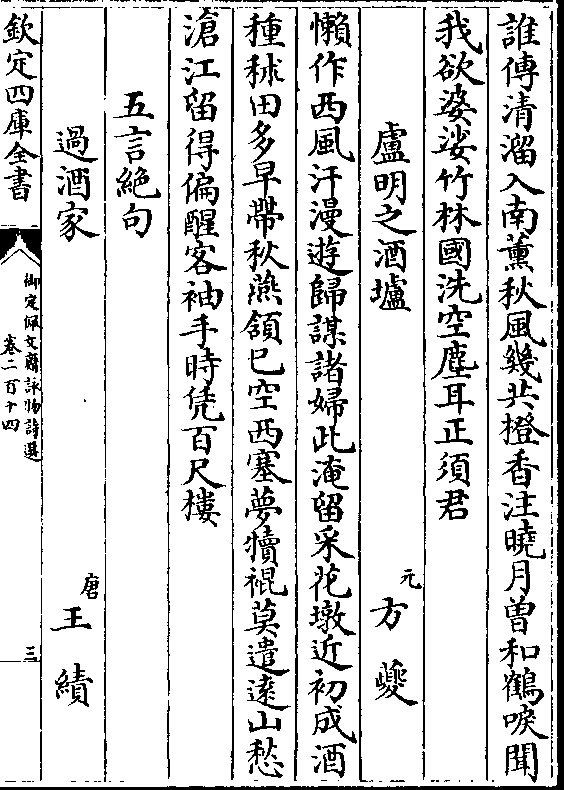 誰傳清溜入南薰秋風幾共橙香注曉月曽和鶴唳聞
我欲婆娑竹林國洗空塵耳正須君
盧明之酒壚
元方夔
懶作西風汗漫遊歸謀諸婦此淹留采花墩近初成酒
種秫田多早帶秋燕頷已空西塞夢犢裩莫遣遠山愁
滄江留得偏醒客袖手時凭百尺樓
五言絶句
過酒家
唐王績
欽定四庫全書
御定佩文齋詠物詩選
卷二百十四
三